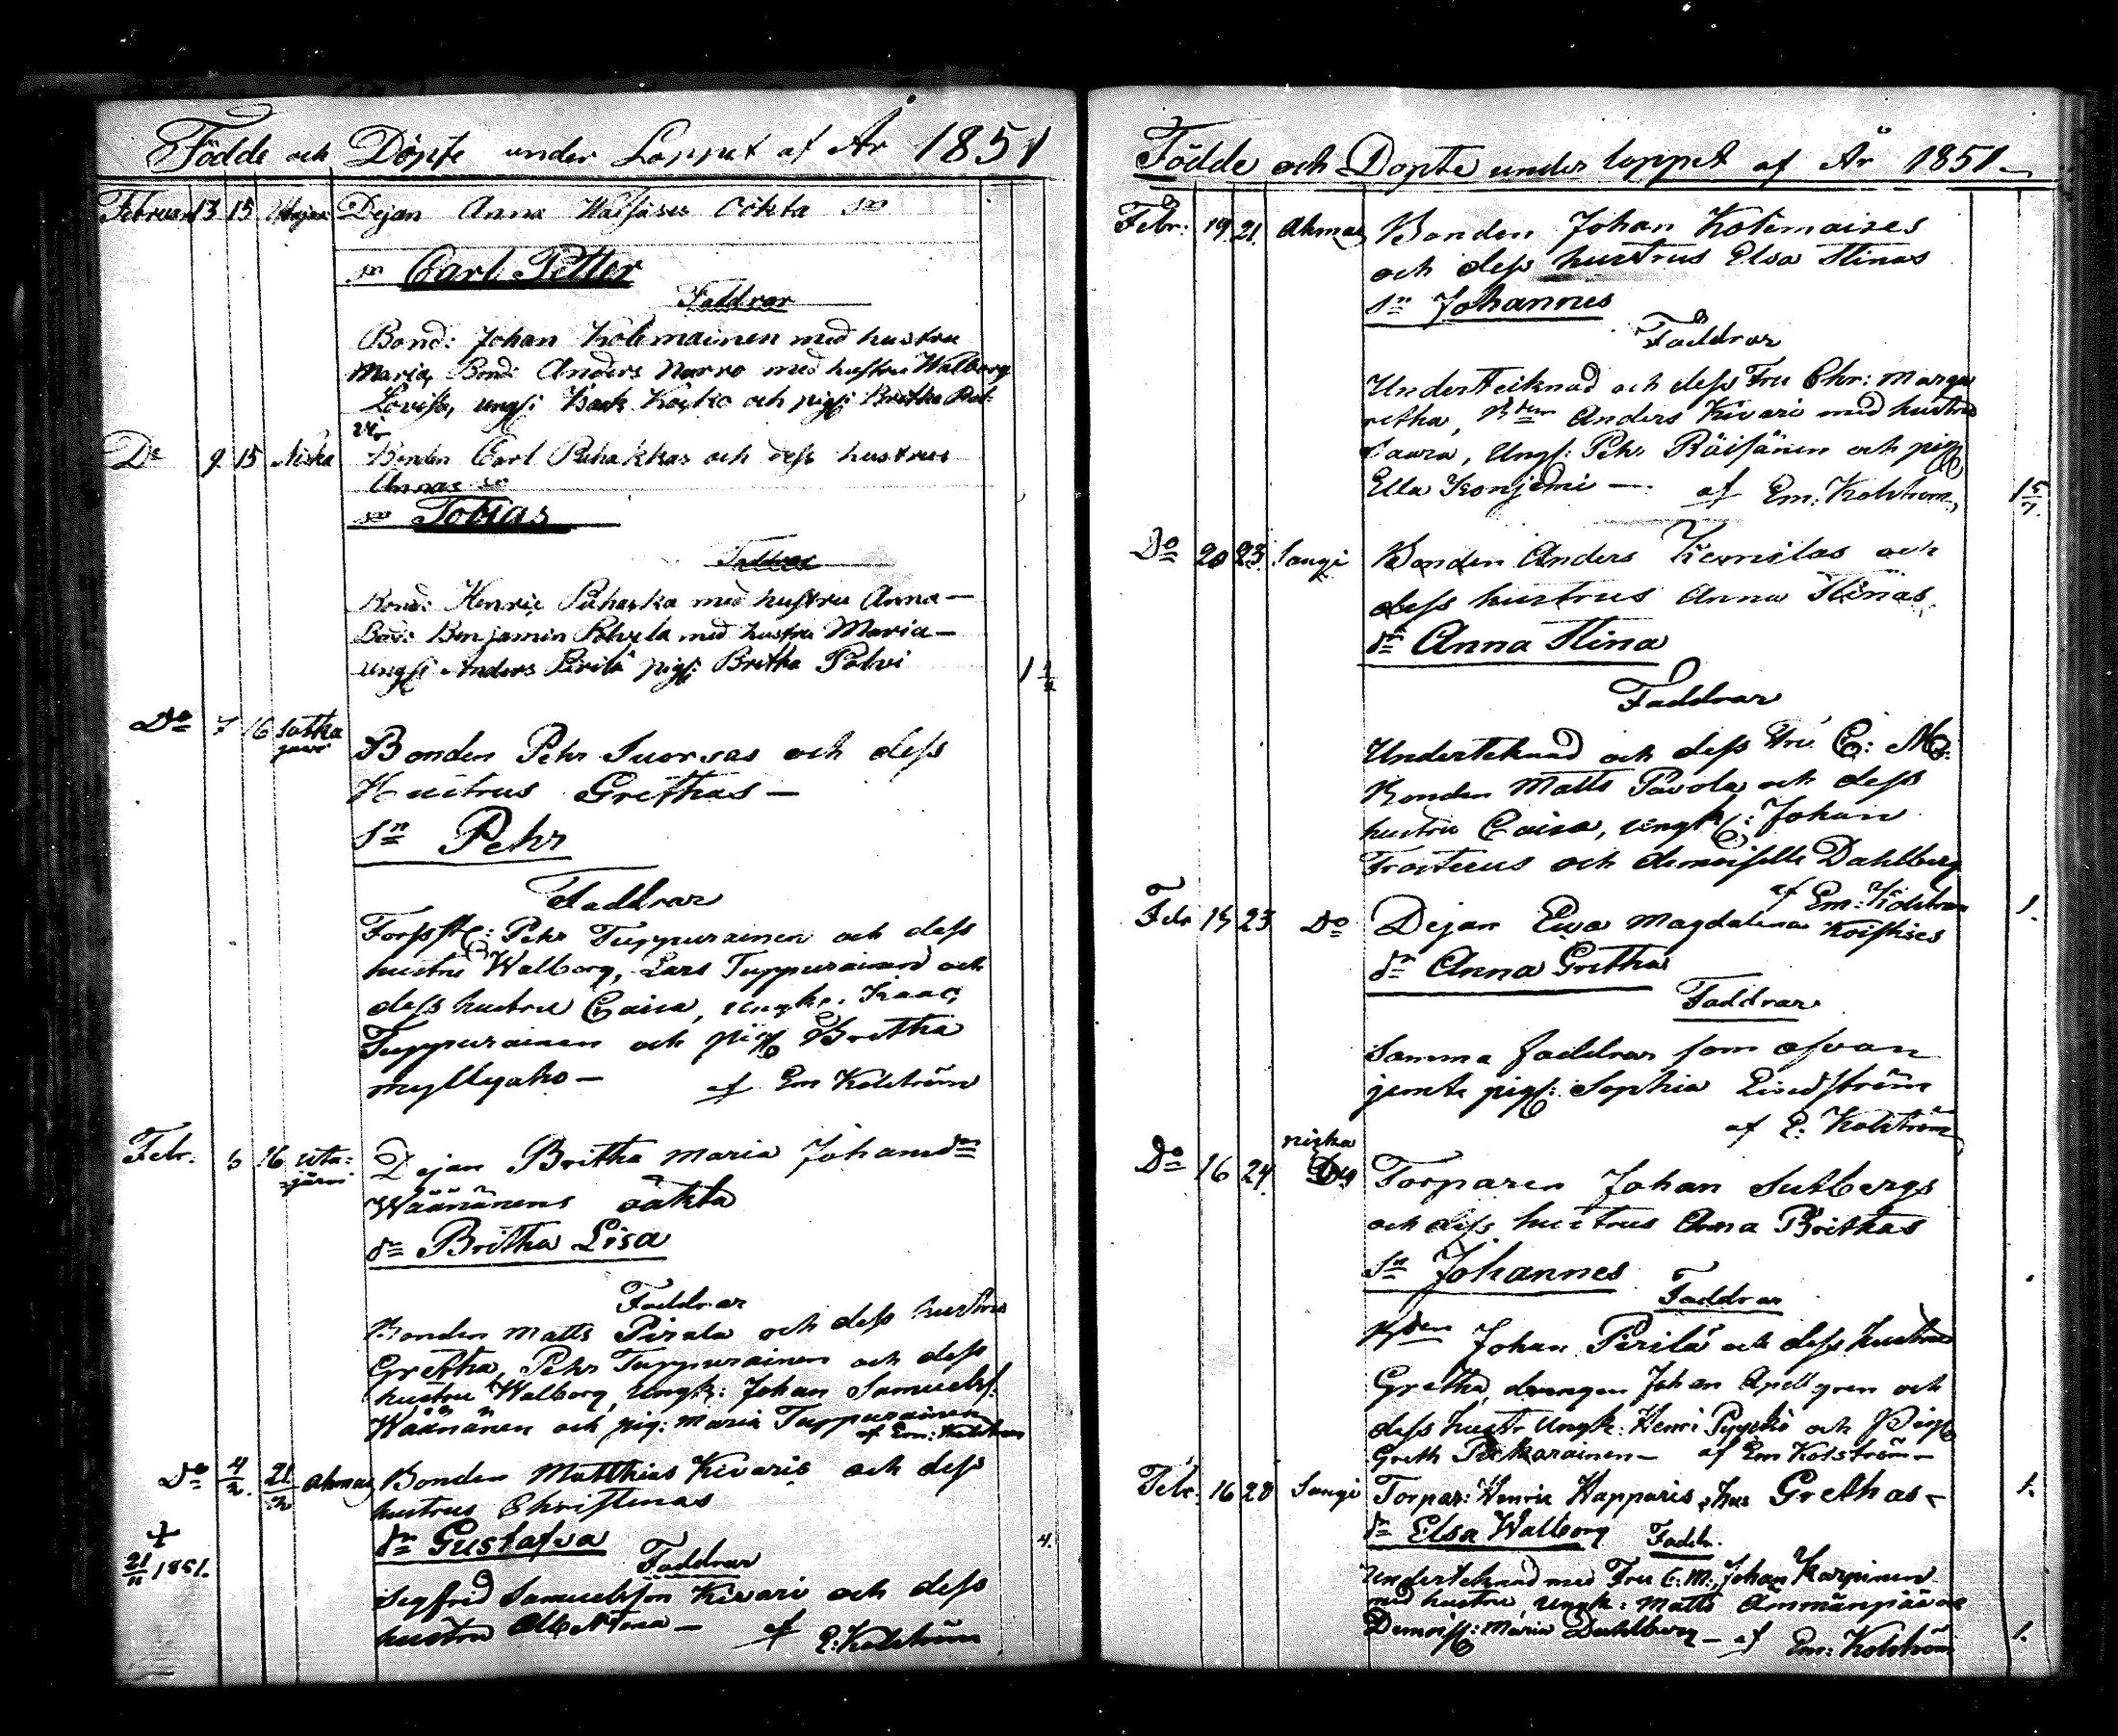 Födde och Döpte under Loppet af År 1851
Februari 13 15 Dejan Anna oäkta sn
sn Carl Petter
Faddrar
Bond: Johan Kolemainen med hustru
Maria, Bond: Anders Narro med hustru Walborg
Lovisa, ungk: Isack och pig: Britha
Do 9 15 Niska Bonden Carl Pihakkas och dess hustrus
Annas sn
sn Tobias
Faddrar
Bond: Henric Pihakka med hustru Anna —
Bond: Benjamin med hustru Maria —
ungk: Anders Perilä pig: Britha Polvi
Do 7 16 Sotka
järvi
Bonden Pehr Suorsas och dess
Hustrus Grethas —
sn Pehr
Faddrar
Pehr Tuppurainen och dess
hustru Walborg, Lars Tuppurainen och
dess hustru Caisa, ungk: Isaac
Tuppurainen och pig: Britha
Myllyaho — af Em Kolström
Febr. 5 16 Uta:
järvi
Dejan Britha Maria Johansdr
Wäänänens oäkta
dr Britha Lisa
Faddrar
Bonden Matts Pirala och dess hustru
Gretha, Pehr Tuppurainen och dess
hustru Walborg, ungk: Johan Samuelsf:
Wäänänen och pig: Maria Tuppurainen
af Em: Kolström
Do 4/2 21/2 Ahmas Bonden Matthias Kivaris och dess
hustrus Christinas
dr Gustafva
Faddrar 4.
+
21/11 1851.
Sigfrid Samuelsson Kivari och dess
hustru
af E: Kolström
Födde och Döpte under loppet af År 1851
Febr: 19 21 Ahmas Bonden Johan Kolemaises
och dess hustrus Elsa Stinas
sn Johannes
Faddrar
Undertecknad och dess Fru Chr: Marga
retha, Bden Anders Kivari med hustru
Laura, Ungk: Pehr Räisänen och pig
Ella Konjemi — af Em: Kolström
Do 20 23 Sangi Bonden Anders och
dess hustrus Anna Stinas
dr Anna Stina
Faddrar
Underteknad och dess Fru C: M:
Bonden Matts Pavola och dess
hustru Caisa, ungk: Johan
Frosterus och demoiselle Dahlberg
af Em: Kolström
Febr 15 23 Do Dejan Ewa Magdalena Koistises 1.
dr Anna Gretha
Faddrar
Samma faddrar som ofvan
jemte pig: Sophia Lindström
af E: Kolström
Niska
Do 16 24 Torparen Johan Sutbergs
och dess hustrus Anna Brithas
sn Johannes
Faddrar
Bden Johan Perilä och dess hustru
Gretha, drengen Johan och
dess hustr Ungk: Henri och Pig
Greth Pukarainen — af Em Kolström —
Febr: 16 28 Sangi Torpar: Henric Happaris, hus Grethas — 1.
dr Elsa Walborg Faddr.
Underteknad med Fru C: M:, Johan Karpinen
med hustru, Ungk: Matts Ammänpää och
Demoiss: Maria Dahlberg — af Em: Kolström 1.